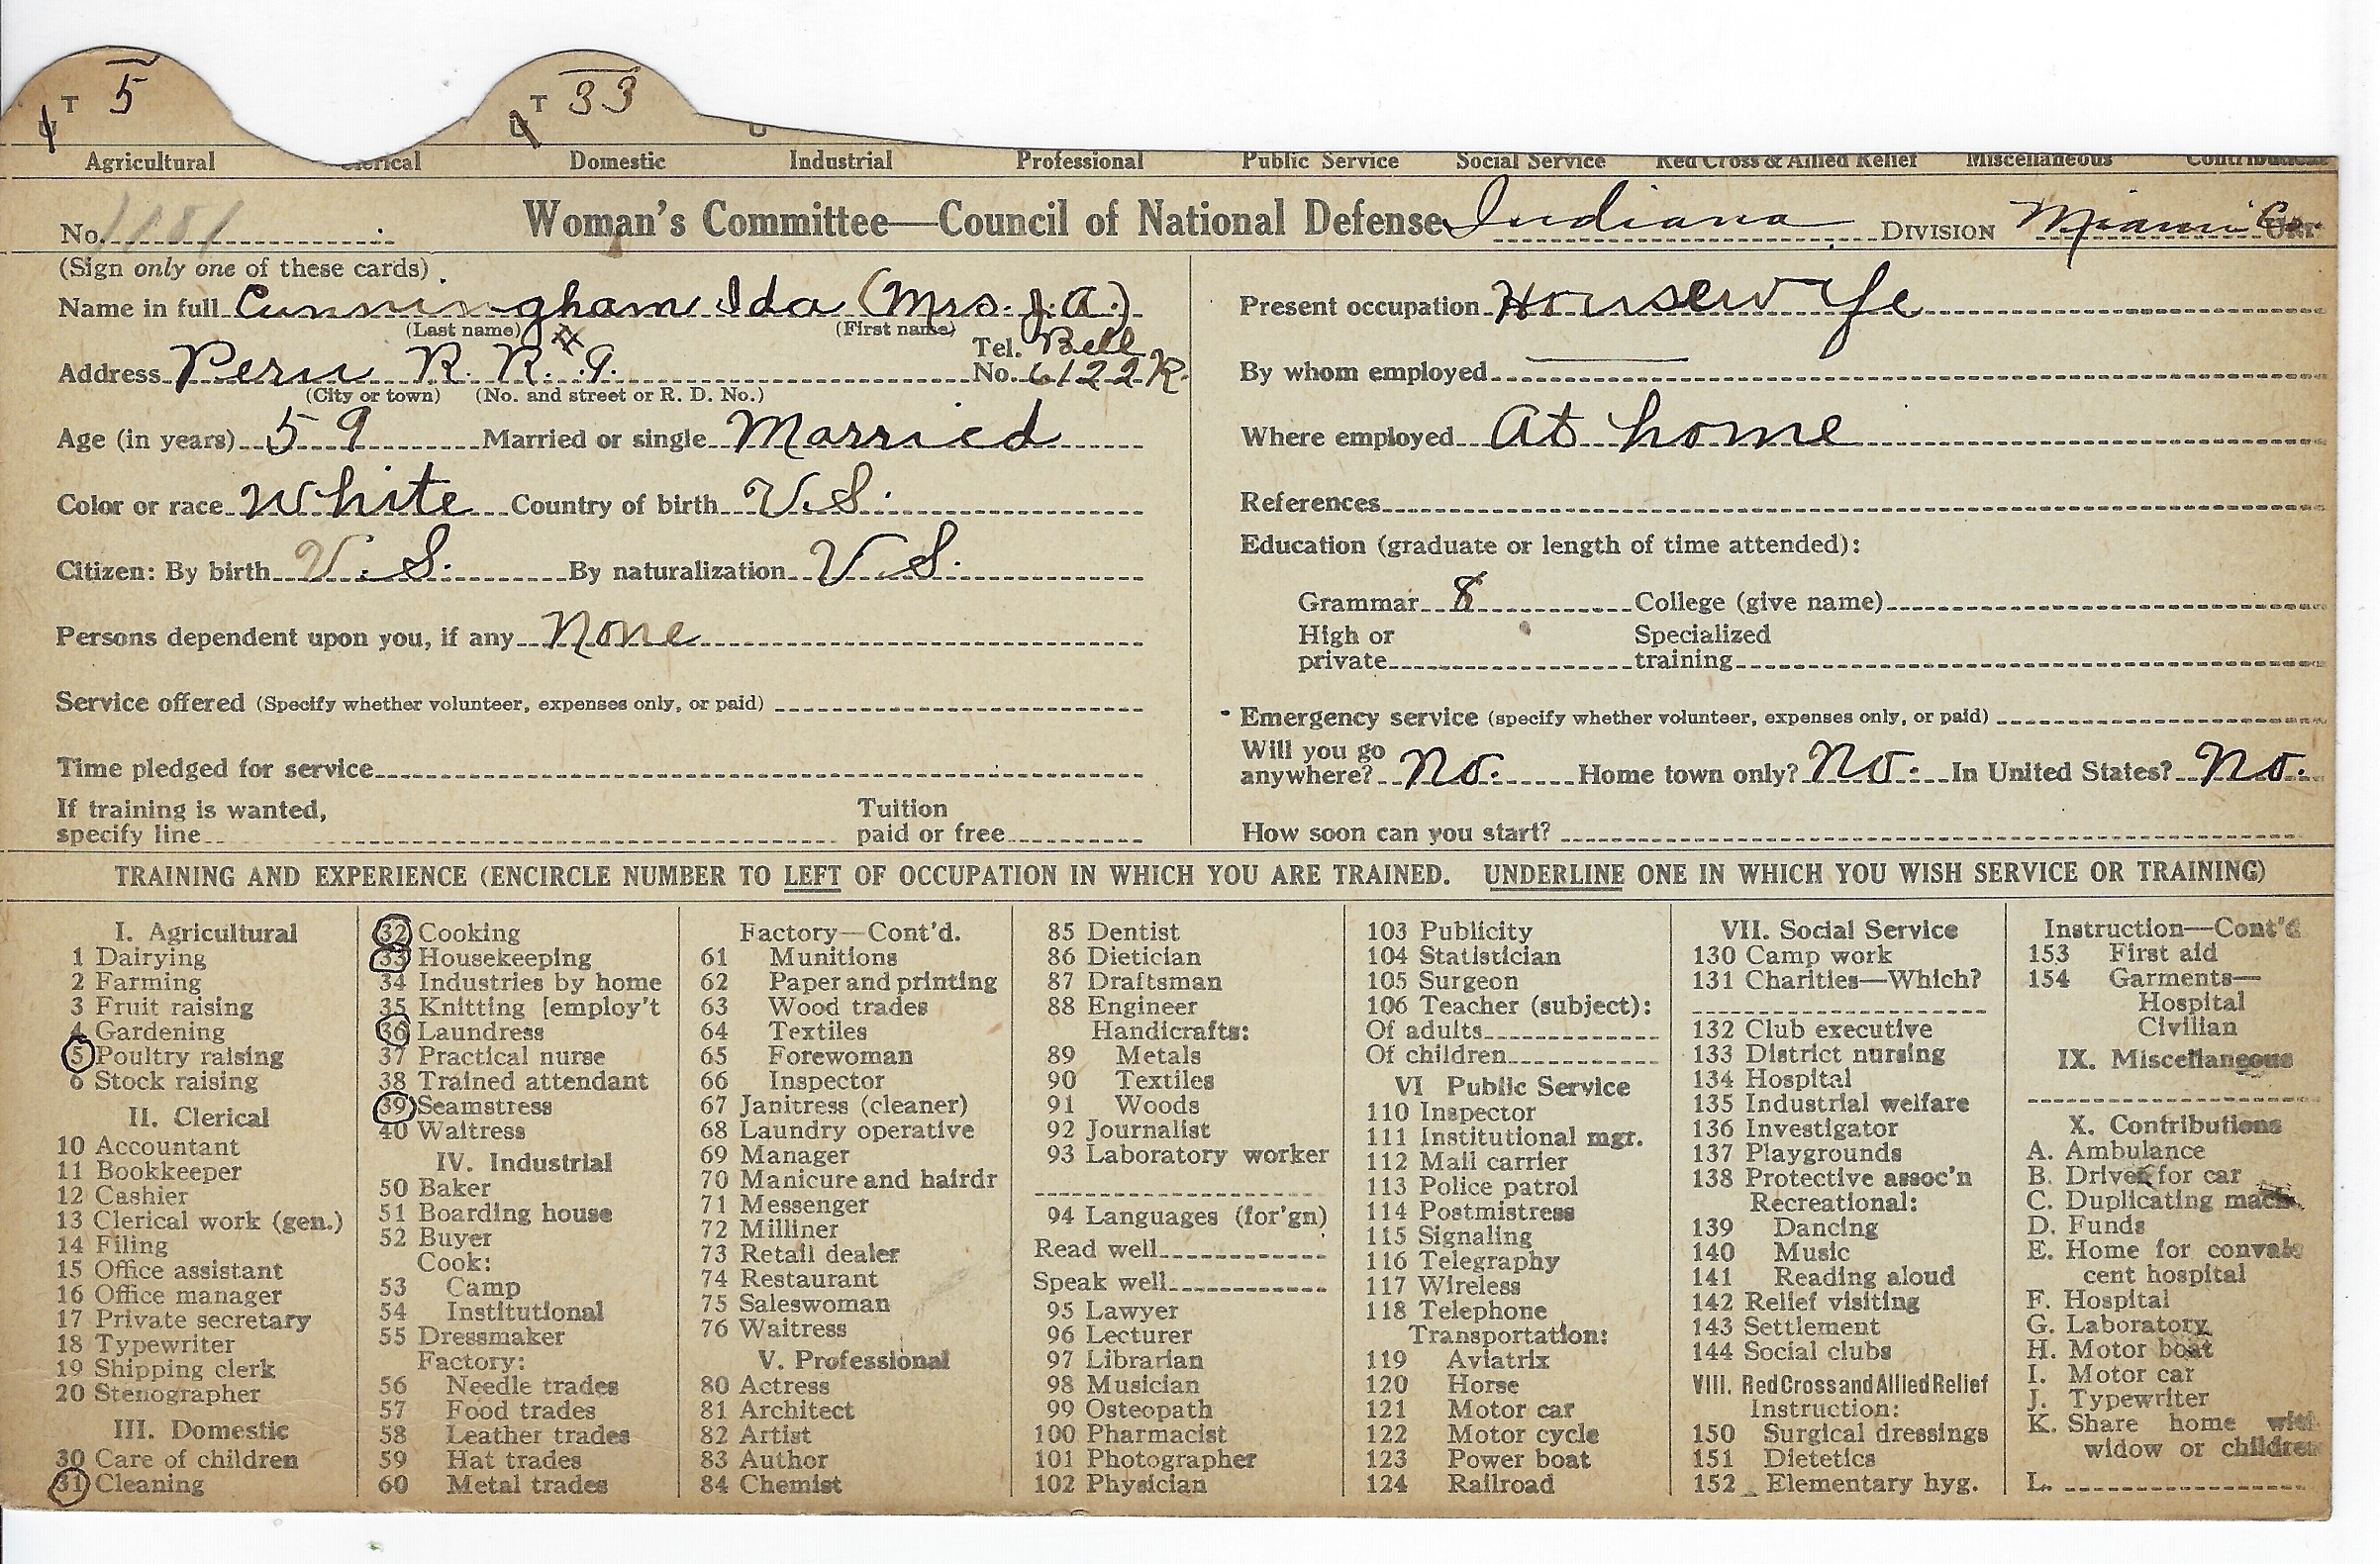 T 5 T 33
U U U
Agricultural Clerical Domestic Industrial Professional Public Service Social Service Red Cross & Allied Relief Miscellaneous Contributions
No. 1181 Woman's Committee—Council of National Defense Indiana DIVISION Miami Co. UNIT
(Sign only one of these cards)
Name in full Cunningham Ida (Mrs. J. A.)
(Last name) (First name)
Address Peru R. R. #9. Tel. No. Bell 6122 K.
(City or town) (No. and street or R. D. No.)
Age (in years) 59 Married or single Married
Color or race White Country of birth U.S.
Citizen: By birth U.S. By naturalization U.S.
Persons dependent upon you, if any None
Service offered (Specify whether volunteer, expenses only, or paid)
Time pledged for service
If training is wanted, specify line Tuition paid or free
Present occupation Housewife
By whom employed ———
Where employed At home
References
Education (graduate or length of time attended):
Grammar 8 College (give name)
High or private Specialized training
Emergency service (specify whether volunteer, expenses only, or paid)
Will you go anywhere? No. Home town only? No. In United States? No.
How soon can you start?
TRAINING AND EXPERIENCE (ENCIRCLE NUMBER TO LEFT OF OCCUPATION IN WHICH YOU ARE TRAINED. UNDERLINE ONE IN WHICH YOU WISH SERVICE OR TRAINING)
I. Agricultural
1 Dairying
2 Farming
3 Fruit raising
4 Gardening
5 Poultry raising
6 Stock raising
II. Clerical
10 Accountant
11 Bookkeeper
12 Cashier
13 Clerical work (gen.)
14 Filing
15 Office assistant
16 Office manager
17 Private secretary
18 Typewriter
19 Shipping clerk
20 Stenographer
III. Domestic
30 Care of children
31 Cleaning
32 Cooking
33 Housekeeping
34 Industries by home
35 Knitting [employ't
36 Laundress
37 Practical nurse
38 Trained attendant
39 Seamstress
40 Waitress
IV. Industrial
50 Baker
51 Boarding house
52 Buyer
Cook:
53 Camp
54 Institutional
55 Dressmaker
Factory:
56 Needle trades
57 Food trades
58 Leather trades
59 Hat trades
60 Metal trades
Factory—Cont'd.
61 Munitions
62 Paper and printing
63 Wood trades
64 Textiles
65 Forewoman
66 Inspector
67 Janitress (cleaner)
68 Laundry operative
69 Manager
70 Manicure and hairdr
71 Messenger
72 Milliner
73 Retail dealer
74 Restaurant
75 Saleswoman
76 Waitress
V. Professional
80 Actress
81 Architect
82 Artist
83 Author
84 Chemist
85 Dentist
86 Dietician
87 Draftsman
88 Engineer
Handicrafts:
89 Metals
90 Textiles
91 Woods
92 Journalist
93 Laboratory worker
94 Languages (for'gn)
Read well
Speak well
95 Lawyer
96 Lecturer
97 Librarian
98 Musician
99 Osteopath
100 Pharmacist
101 Photographer
102 Physician
103 Publicity
104 Statistician
105 Surgeon
106 Teacher (subject):
Of adults
Of children
VI Public Service
110 Inspector
111 Institutional mgr.
112 Mail carrier
113 Police patrol
114 Postmistress
115 Signaling
116 Telegraphy
117 Wireless
118 Telephone
Transportation:
119 Aviatrix
120 Horse
121 Motor car
122 Motor cycle
123 Power boat
124 Railroad
VII. Social Service
130 Camp work
131 Charities—Which?
132 Club executive
133 District nursing
134 Hospital
135 Industrial welfare
136 Investigator
137 Playgrounds
138 Protective assoc'n
Recreational:
139 Dancing
140 Music
141 Reading aloud
142 Relief visiting
143 Settlement
144 Social clubs
VIII. Red Cross and Allied Relief
Instruction:
150 Surgical dressings
151 Dietetics
152 Elementary hyg.
Instruction—Cont'd
153 First aid
154 Garments—
Hospital
Civilian
IX. Miscellaneous
X. Contributions
A. Ambulance
B. Driver for car
C. Duplicating mach.
D. Funds
E. Home for convales
cent hospital
F. Hospital
G. Laboratory
H. Motor boat
I. Motor car
J. Typewriter
K. Share home with
widow or children
L.